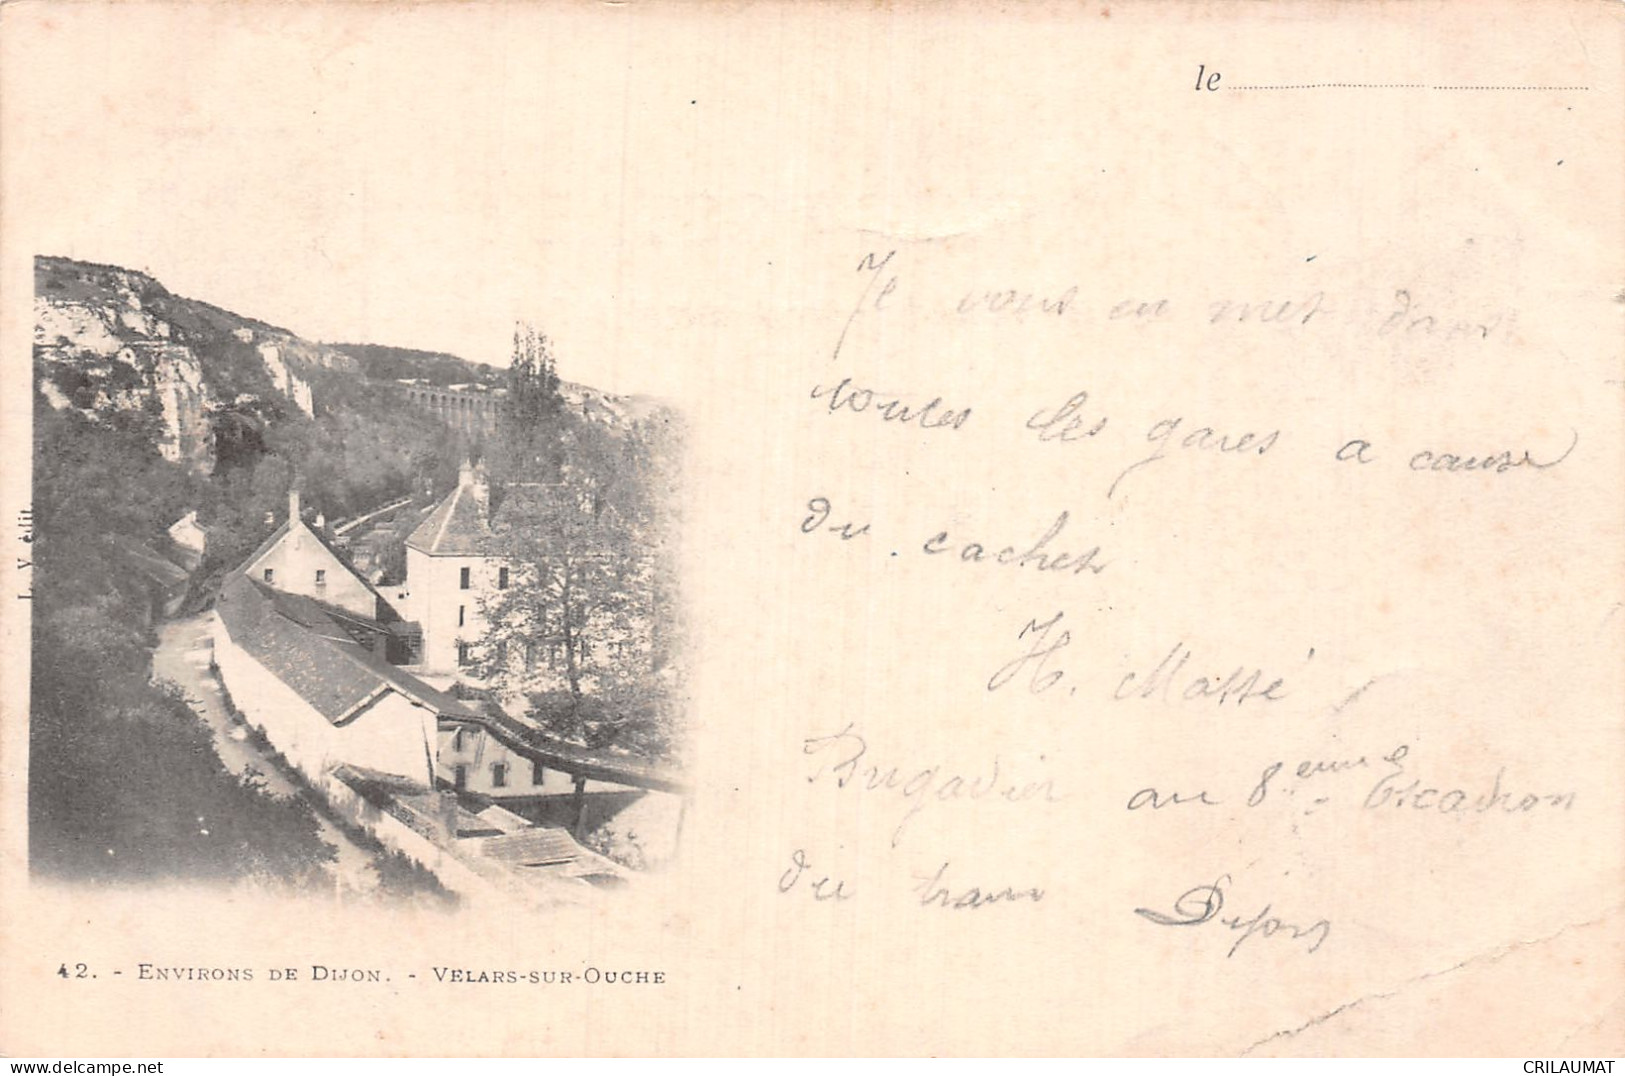 le
Je vous en met dans
toutes les gares a cause
du cachet
H. Massé
Brigadier au 8eme Escadron
du train Dijon
L. V. édit.
42. - ENVIRONS DE DIJON. - VELARS-SUR-OUCHE
CRILAUMAT